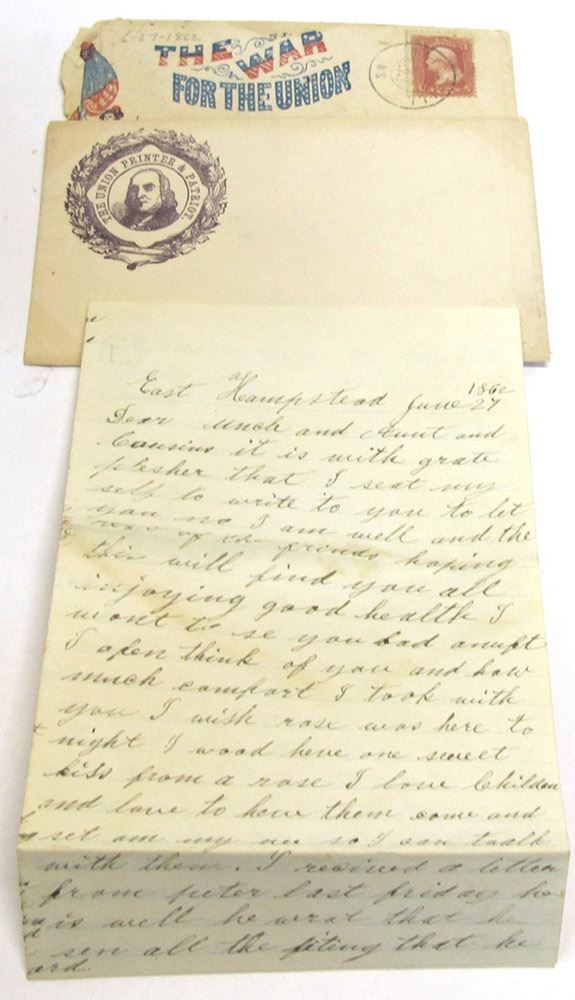 6-27-1862
THE WAR
FOR THE UNION
THE UNION PRINTER & PATRIOT.
East Hampstead June 27
1862
Dear Uncle and Aunt and
Cousins it is with grate
plesher that I seat my
self to write to you to let
you no I am well and the
rest of the frinds hoping
this will find you all
injoying good health I
wont to se you bad anuft
I ofen think of you and how
much comfort I took with
you I wish rose was here to
night I wood heve one sweet
kiss from a rose I love Children
and love to heve them come and
set on my nee so I can taalk
with them. I recived a letter
from peter last friday he
is well he wrot that he
sen all the fiting that he